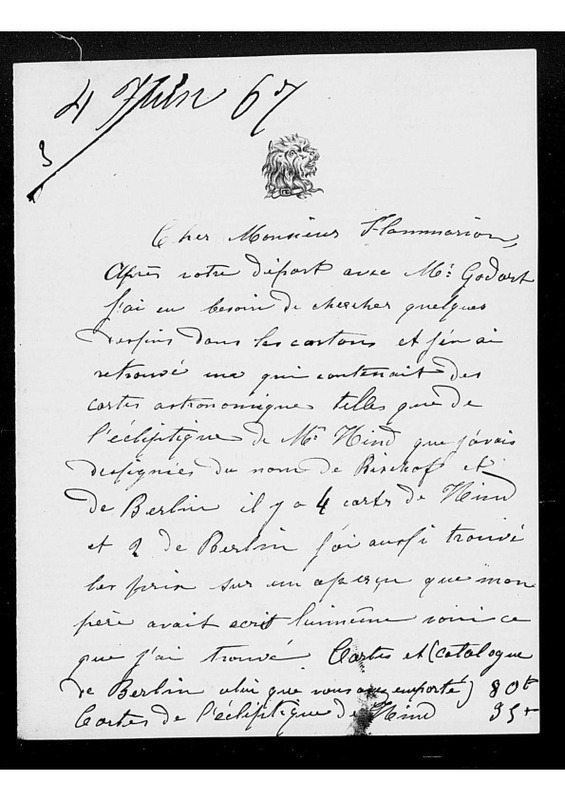 4 Juin 67
3
Cher Monsieur Flammarion,
Après votre départ avec Mr. Godart
j'ai eu besoin de chercher quelques
dessins dans les cartons et j'en ai
retrouvé une qui contenait des
cartes astronomique telles que de
l'écliptique de Mr Hind que j'avais
dessignées du nom de Bischof et
de Berlin il y a 4 carts de Hind
et 2 de Berlin j'ai aussi trouvé
les prix sur un aperçu que mon
père avait ecrit luimême voici ce
que j'ai trouvé Cartes et (catalogue
de Berlin celui que vous avez emporté) 80f
Cartes de l'écliptique de Hind 35f